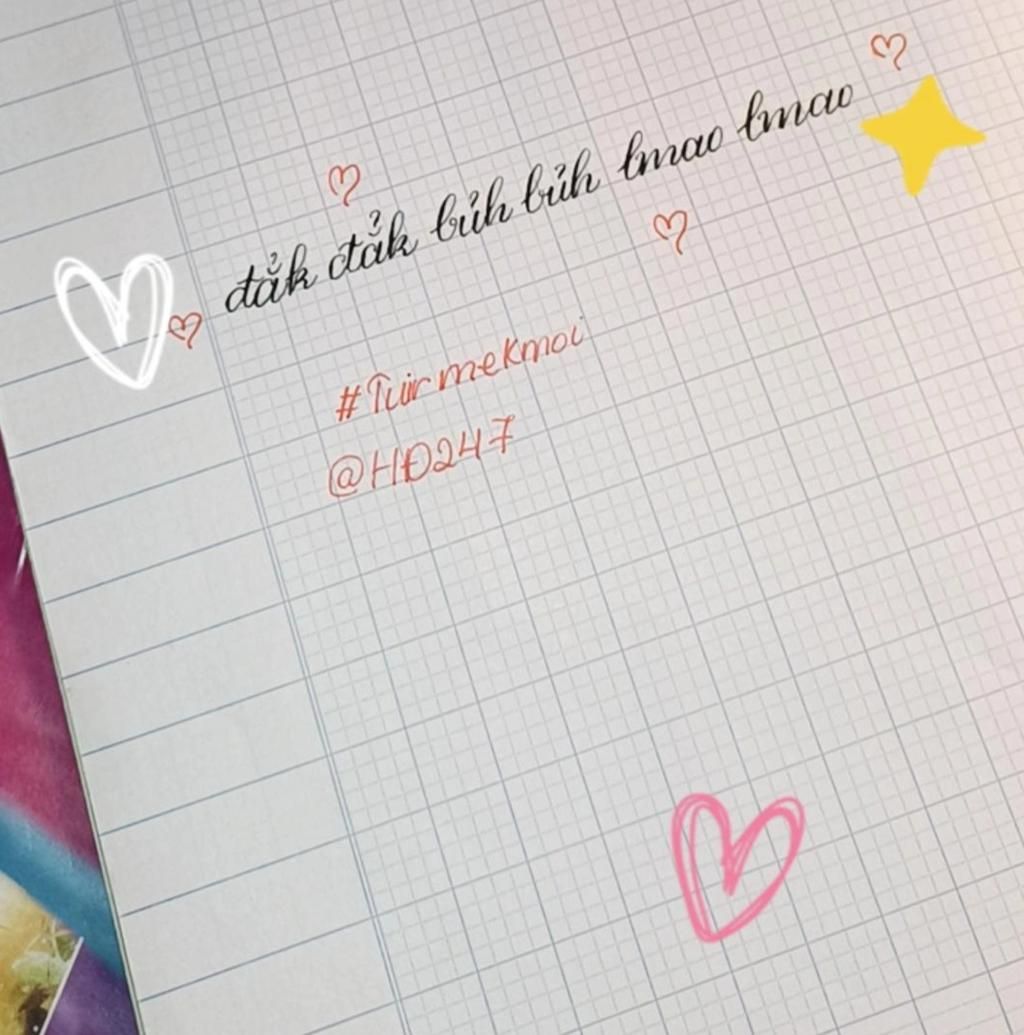 đảk đảk bủh bủh lmao lmao
#Tuirmekmoi
@HĐ247